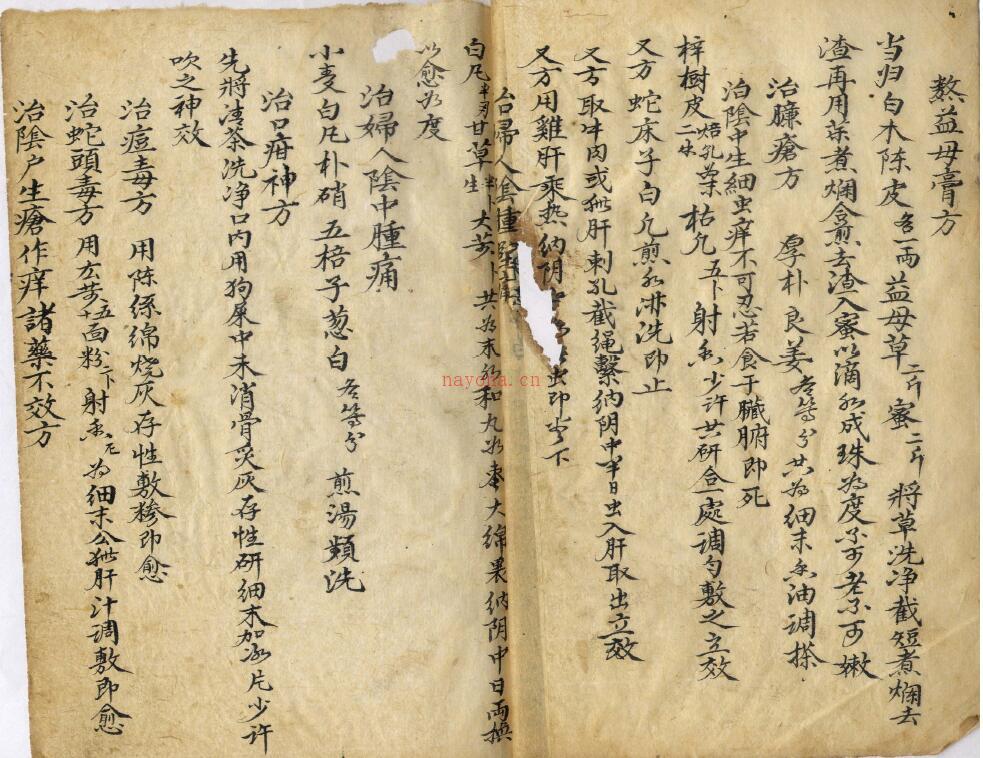 熬益母膏方
当归白木陈皮各一両益母草二斤蜜二斤将草洗净截短煮爛去
渣再用茶煮爛合煎去渣入蜜以滴水成珠为度不可老不可嫩
治臁瘡方 厚朴良姜各等分共为细末香油调搽
治陰中生细虫痒不可忍若食于臓腑即死
梓樹皮焙乳業二牛枯凢五卜射香少许共研合一處调匀敷之立效
又方 蛇床子白凢煎水淋洗即止
又方取牛肉或猪肝刺孔截绳繫纳阴中半日虫入肝取出立效
又方用雞肝乘热纳阴虫即出下
治婦人陰腫
白凢半刃甘草生半卜大黄卜共为末水和丸如枣大绵裹纳阴中日両換
以愈为度
治婦人陰中腫痛
小麦白凢朴硝五棓子葱白各等分煎湯頻洗
治口疳神方
先將清茶洗净口内用狗屎中未消骨炙灰存性研细末加冰片少许
吹之神效
治痘毒方 用陈絲綿烧灰存性敷糁即愈
治蛇頭毒方 用雄黄五千面粉一卜射香二元为细末公猪肝汁调敷即愈
治陰户生瘡作痒諸藥不效方
nayona.cn